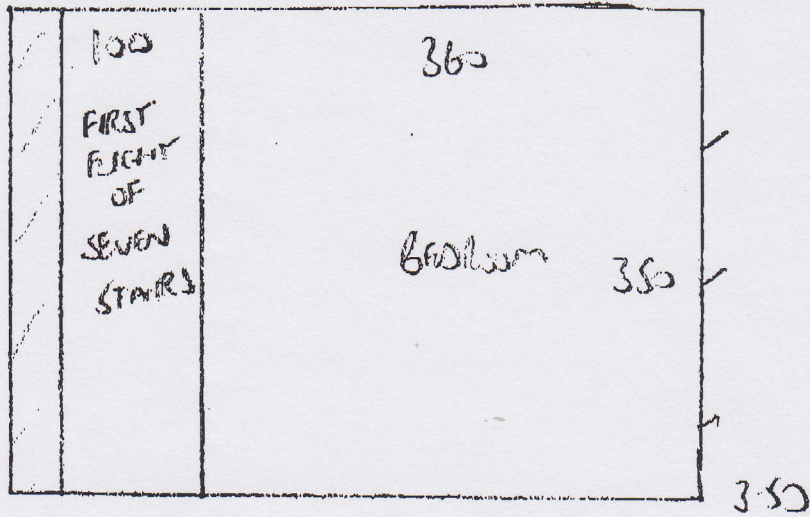 100
360
FIRST
FLIGHT
OF
SEVEN
STAIRS
BEDROOM
350
3.50